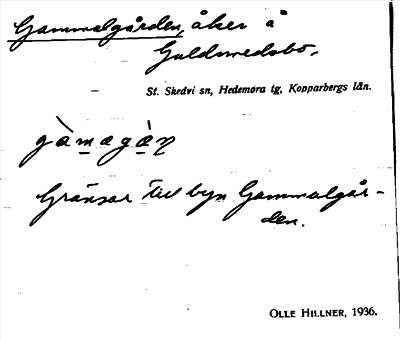 Gammalgården, åker å
Guldsmedsbo.
St. Skedvi sn, Hedemora tg, Kopparbergs län.
Gränsar till byn Gammalgår-
den.
OLLE HILLNER, 1936.